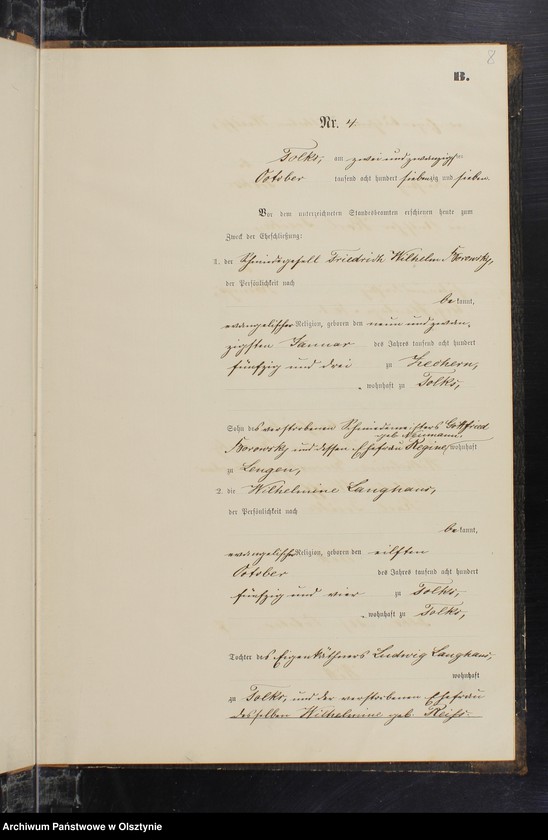 8
B.
Nr. 4.
Tolks, am zwei und zwanzigsten
October tausend acht hundert siebenzig und sieben.
Vor dem unterzeichneten Standesbeamten erschienen heute zum
Zweck der Eheschließung:
1. der Schmiedegesell Friedrich Wilhelm Borowsky,
der Persönlichkeit nach
bekannt,
evangelischer Religion, geboren den neun und zwan,
zigsten Januar des Jahres tausend acht hundert
fünfzig und drei zu Zechern,
wohnhaft zu Tolks,
Sohn des verstorbenen Schmiedemeisters Gottfried
Borowsky und dessen Ehefrau Regine, geb. Neumann. wohnhaft
zu Lengen,
2. die Wilhelmine Langhans,
der Persönlichkeit nach
bekannt,
evangelischer Religion, geboren den eilften
October des Jahres tausend acht hundert
fünfzig und vier zu Tolks,
wohnhaft zu Tolks,
Tochter des Eigenkäthners Ludwig Langhans,
wohnhaft
zu Tolks, und der verstorbenen Ehefrau
desselben Wilhelmine geb.
Archiwum Państwowe w Olsztynie